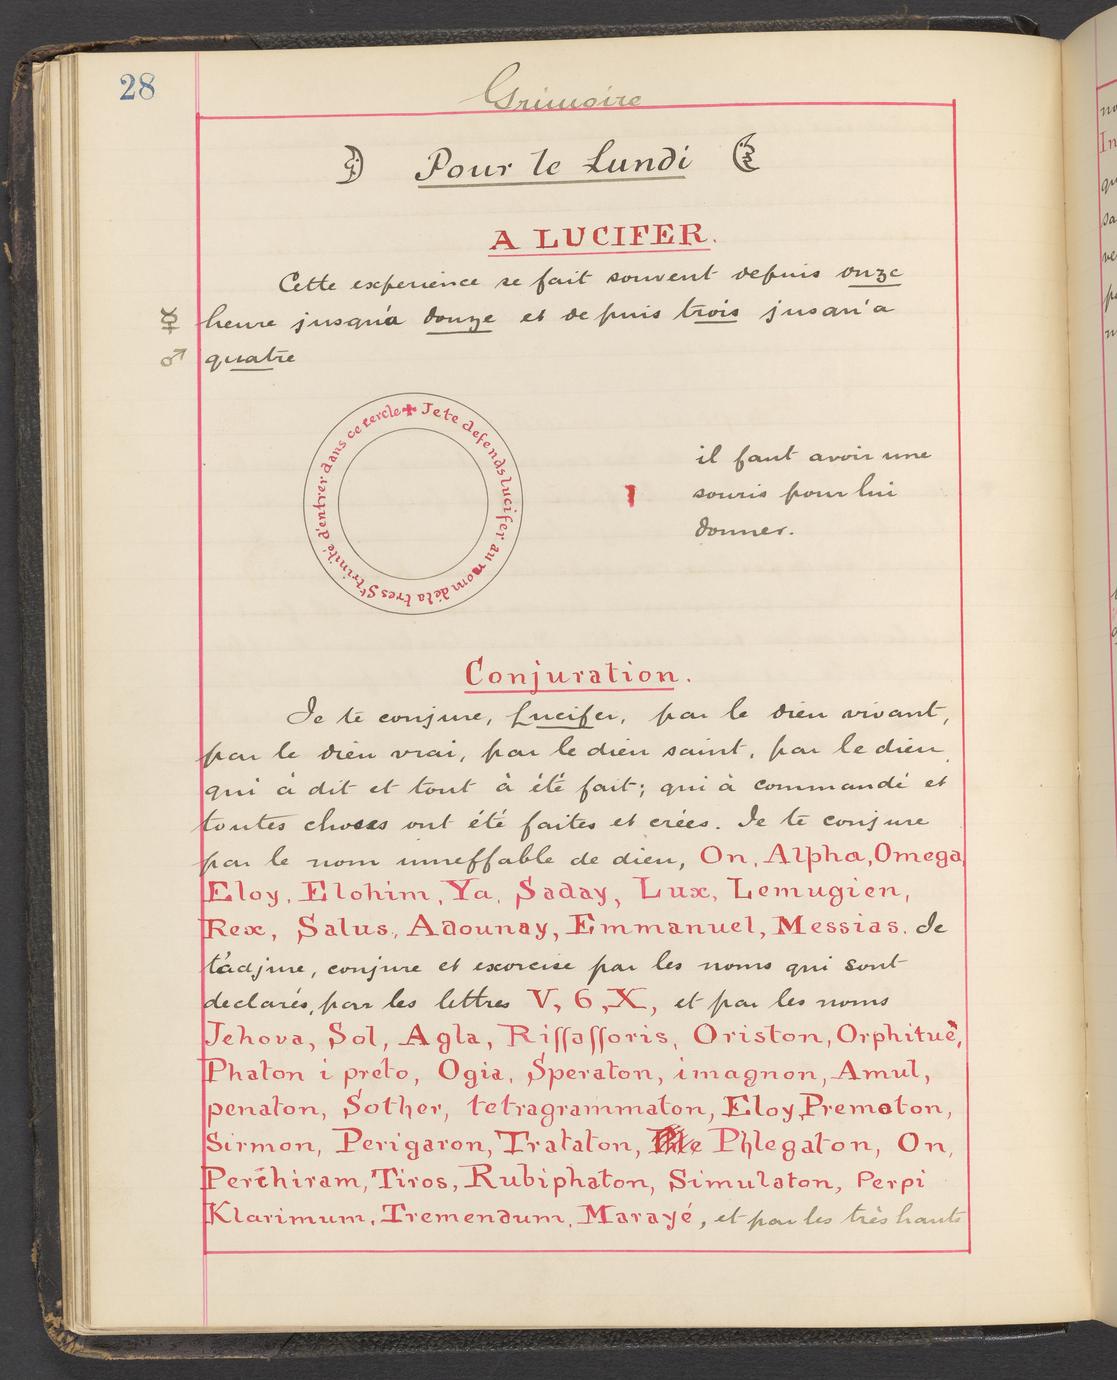 28
Grimoire
Pour le Lundi
A LUCIFER.
Cette experience se fait souvent depuis onze
heure jusqu'a douze et depuis trois jusqu'a
quatre
✚ Je te defends Lucifer au nom de la tres Ste trinité d'entrer dans ce cercle
il faut avoir une
souris pour lui
donner.
Conjuration.
Je te conjure, Lucifer, par le dieu vivant,
par le dieu vrai, par le dieu saint, par le dieu
qui à dit et tout à été fait; qui à commandé et
toutes choses ont été faites et crées. Je te conjure
par le nom inneffable de dieu, On, Alpha, Omega,
Eloy, Elohim, Ya, Saday, Lux, Lemugien,
Rex, Salus, Adounay, Emmanuel, Messias. Je
t'adjure, conjure et exorcise par les noms qui sont
declarés, par les lettres V, 6, X, et par les noms
Jehova, Sol, Agla, Riffafforis, Oriston, Orphitué,
Phaton i preto, Ogia, Speraton, imagnon, Amul,
penaton, Sother, tetragrammaton, Eloy, Premoton,
Sirmon, Perigaron, Trataton, Phlegaton, On,
Perchiram, Tiros, Rubiphaton, Simulaton, Perpi
Klarimum, Tremendum, Marayé, et par les très hauts